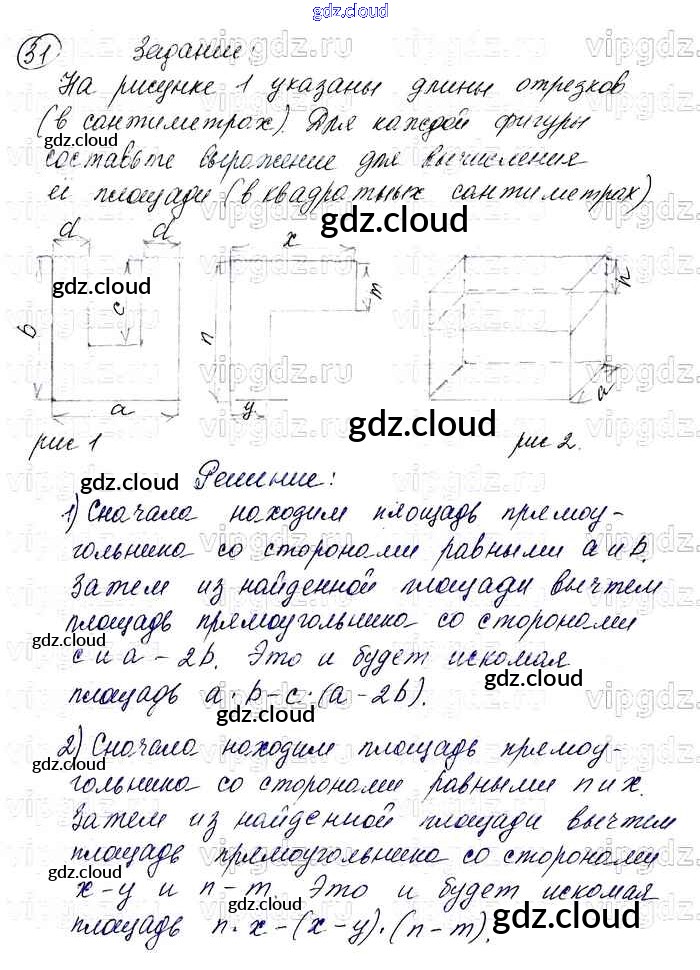 gdz.cloud
31 Задание:
На рисунке 1 указаны длины отрезков
(в сантиметрах). Для каждой фигуры
составьте выражение для вычисления
её площади (в квадратных сантиметрах)
d d x
b c n m h
a y a
рис 1 рис 2.
Решение:
1) Сначала находим площадь прямоу-
гольника со сторонами равными a и b.
Затем из найденной площади вычтем
площадь прямоугольника со сторонами
c и a - 2b. Это и будет искомая
площадь a · b - c · (a - 2b).
2) Сначала находим площадь прямоу-
гольника со сторонами равными n и x.
Затем из найденной площади вычтем
площадь прямоугольника со сторонами
x - y и n - m. Это и будет искомая
площадь n · x - (x - y) · (n - m).